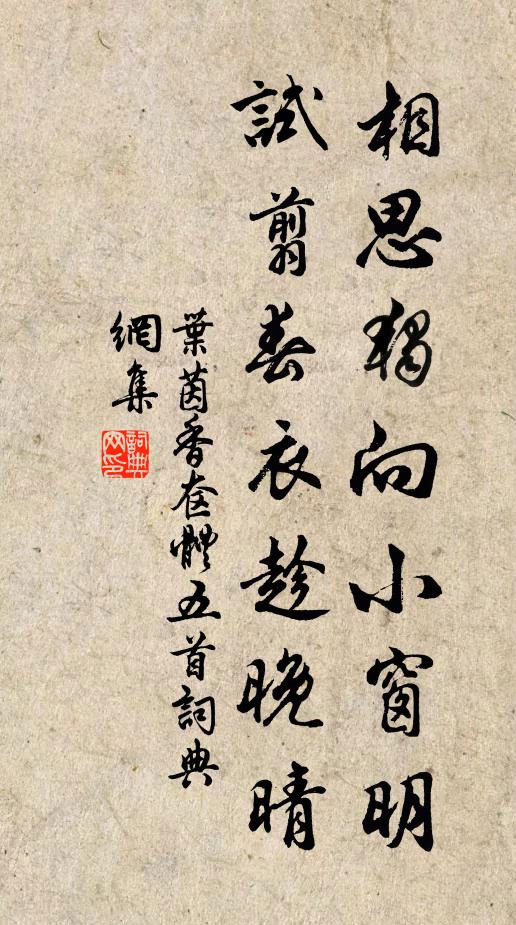 相思獨向小窗明
試翦春衣趁晚晴
葉茵香奩體五首詞典
網集
詞典
网印